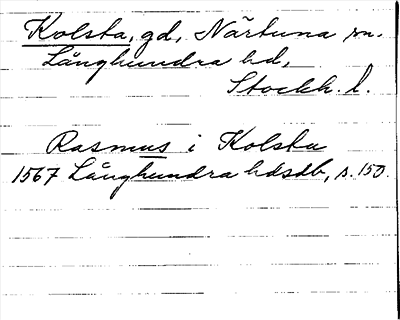 Kolsta, gd, Närtuna sn.
Långhundra hd,
Stockh. l.
Rasmus i Kolsta
1567 Långhundra hdsdb, s. 150.